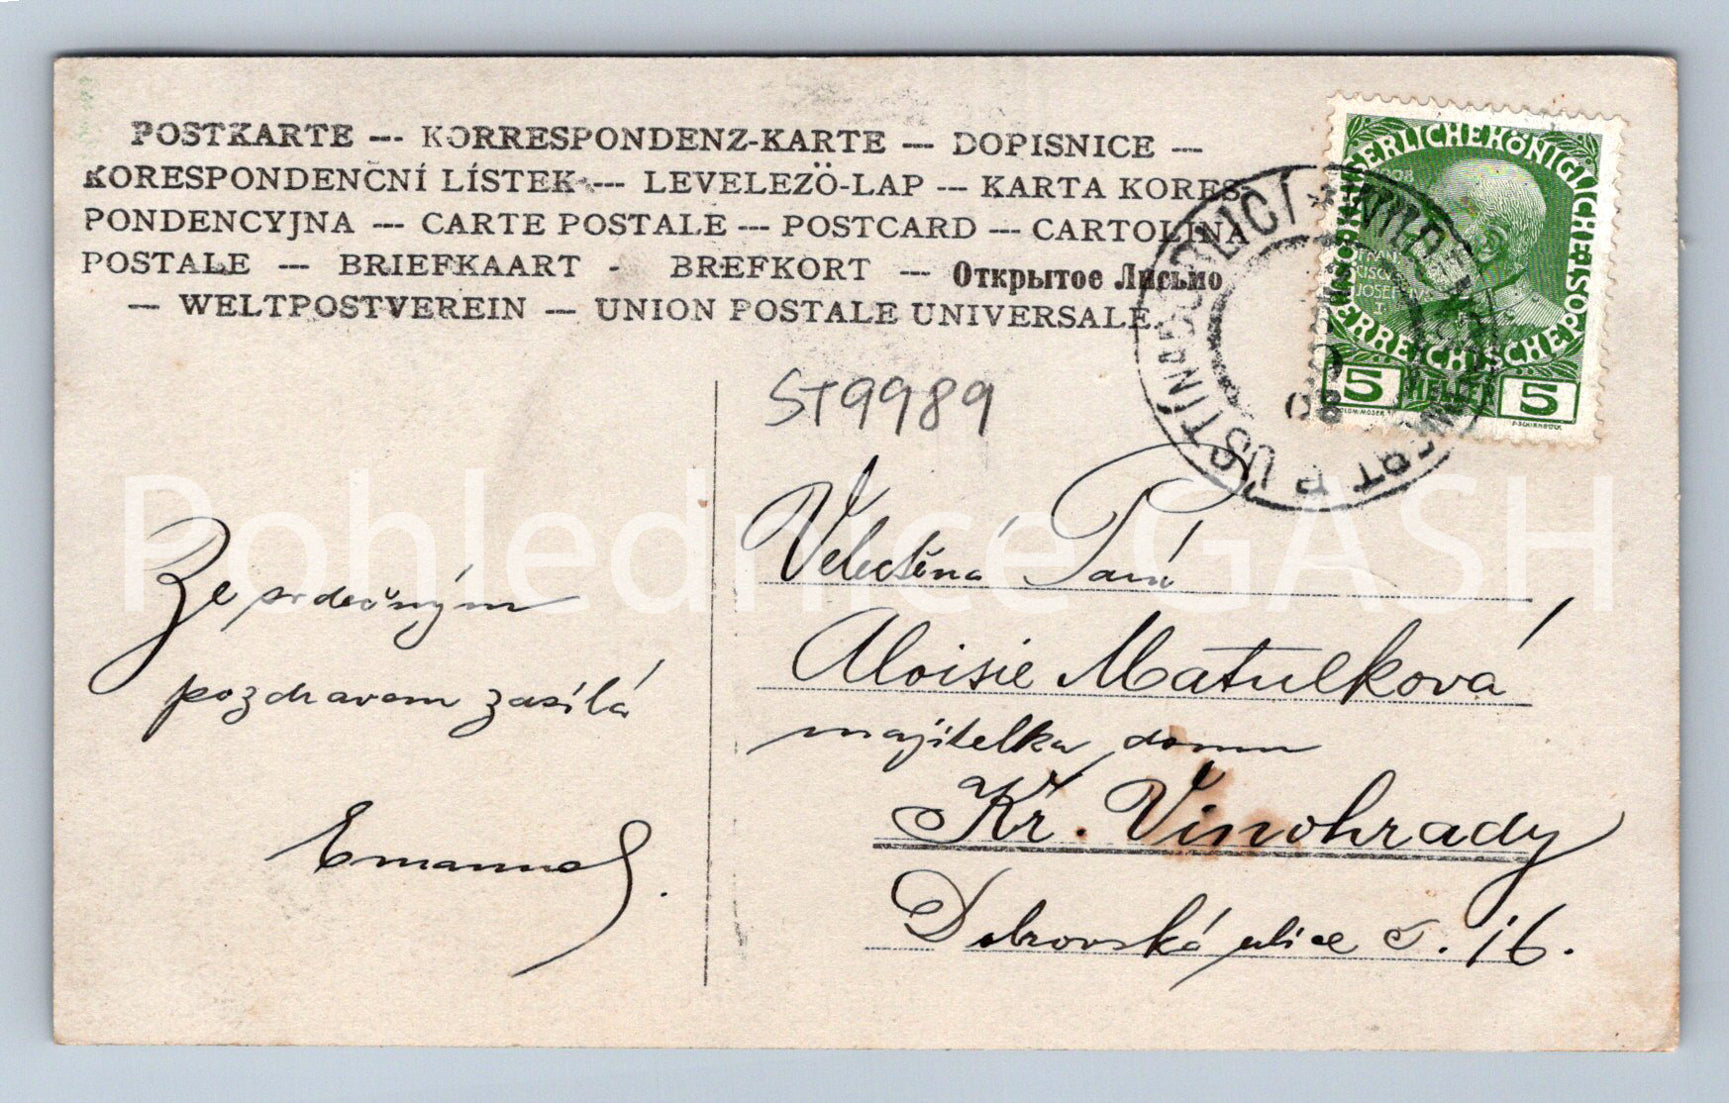 POSTKARTE --- KORRESPONDENZ-KARTE --- DOPISNICE ---
KORESPONDENČNÍ LÍSTEK --- LEVELEZÖ-LAP --- KARTA KORES-
PONDENCYJNA --- CARTE POSTALE --- POSTCARD --- CARTOLINA
POSTALE --- BRIEFKAART - BREFKORT --- Открытое Письмо
— WELTPOSTVEREIN — UNION POSTALE UNIVERSALE.
KAISERLICHE KÖNIGLICHE
ÖSTERREICHISCHE POST
1908
FRAN
CISCVS
JOSEPHVS
I
5 HELLER 5
KOLOM. MOSER
F. SCHIRNBÖCK
ÚSTÍ NAD ORLICÍ * WILDEN
08
ST9989
Ze srdečným
pozdravem zasílá
Emanuel.
Velectěná Paní
Aloisie Matulková
majitelka domu
Kr. Vinohrady
Dobrovská ulice č. 16.
Pohlednice GASH